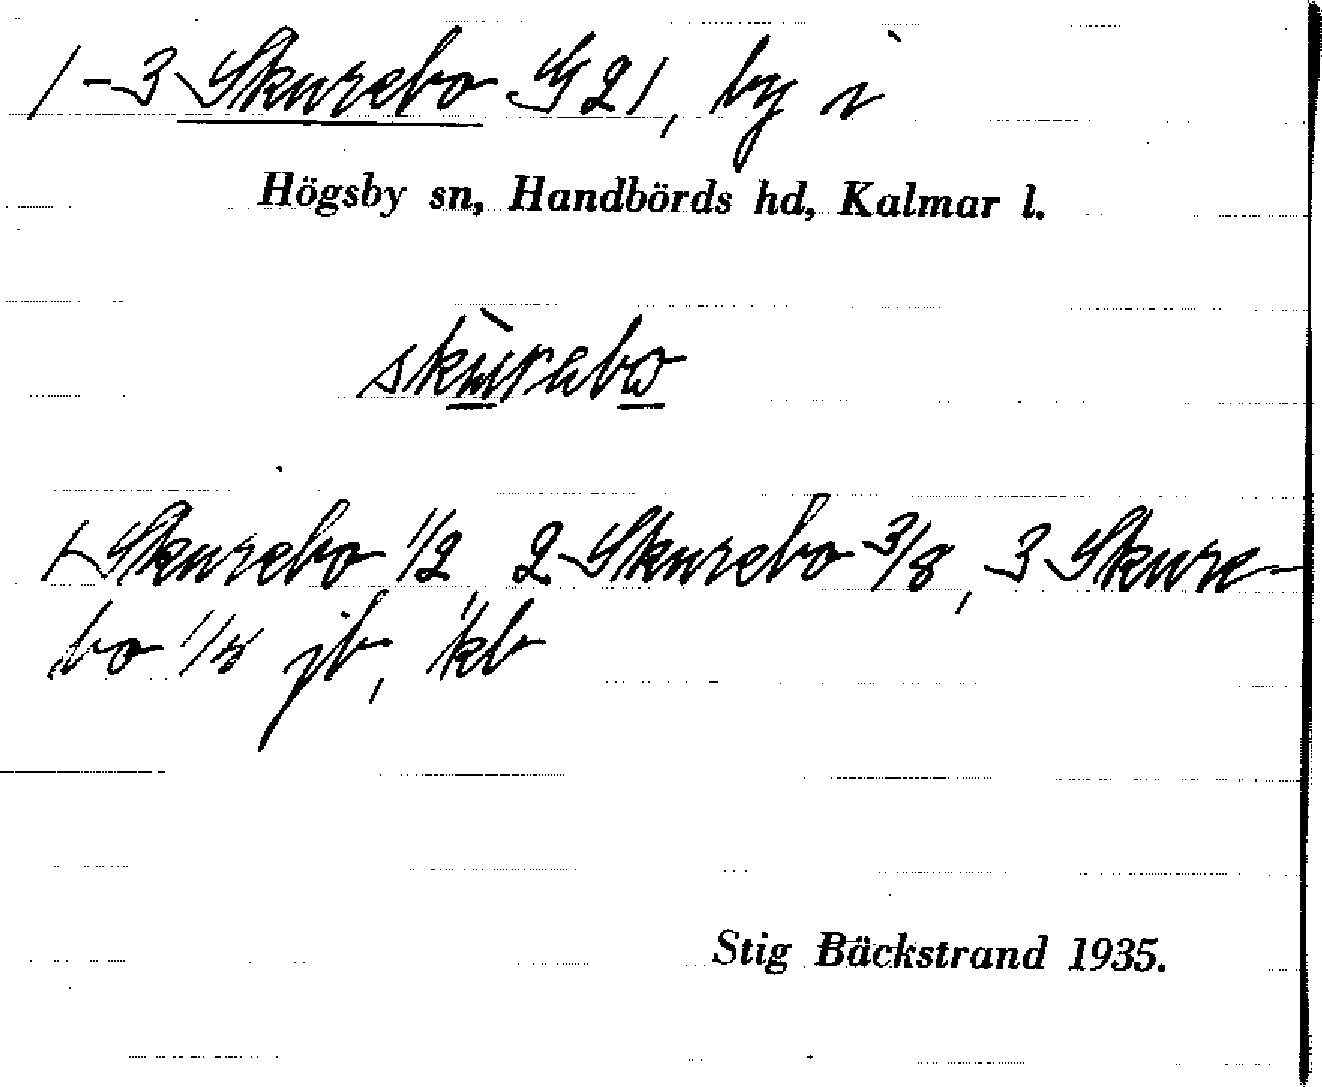 1-3 Skurebo G21, by i
Högsby sn, Handbörds hd, Kalmar l.
skùrabo
1 Skurebo 1/2, 2 Skurebo 3/8, 3 Skure-
bo 1/8 jb, kb
Stig Bäckstrand 1935.